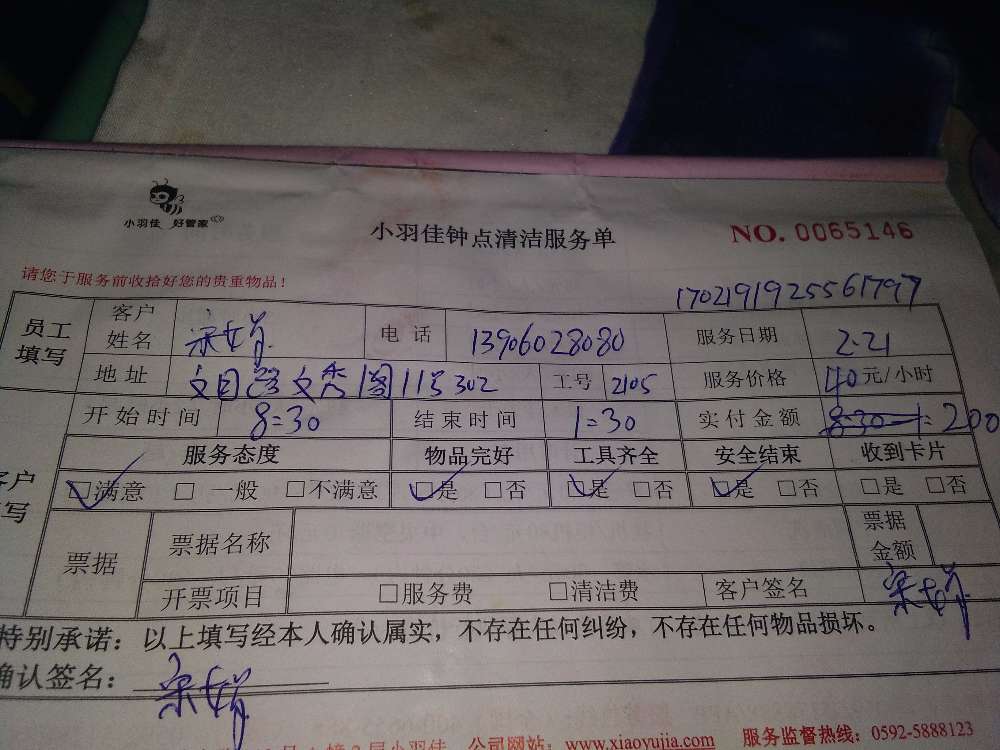 小羽佳 好管家
小羽佳钟点清洁服务单
NO. 0065146
请您于服务前收拾好您的贵重物品!
1702191925561797
员工填写 客户姓名 宋娟 电话 13906028080 服务日期 2.21
地址 文园 文 11号302 工号 2105 服务价格 40元/小时
开始时间 8:30 结束时间 1:30 实付金额 200
服务态度 物品完好 工具齐全 安全结束 收到卡片
□满意 □一般 □不满意 □是 □否 □是 □否 □是 □否 □是 □否
票据 票据名称 票据金额
开票项目 □服务费 □清洁费 客户签名 宋娟
特别承诺:以上填写经本人确认属实,不存在任何纠纷,不存在任何物品损坏。
确认签名: 宋娟
小羽佳 公司网站:www.xiaoyujia.com 服务监督热线:0592-5888123